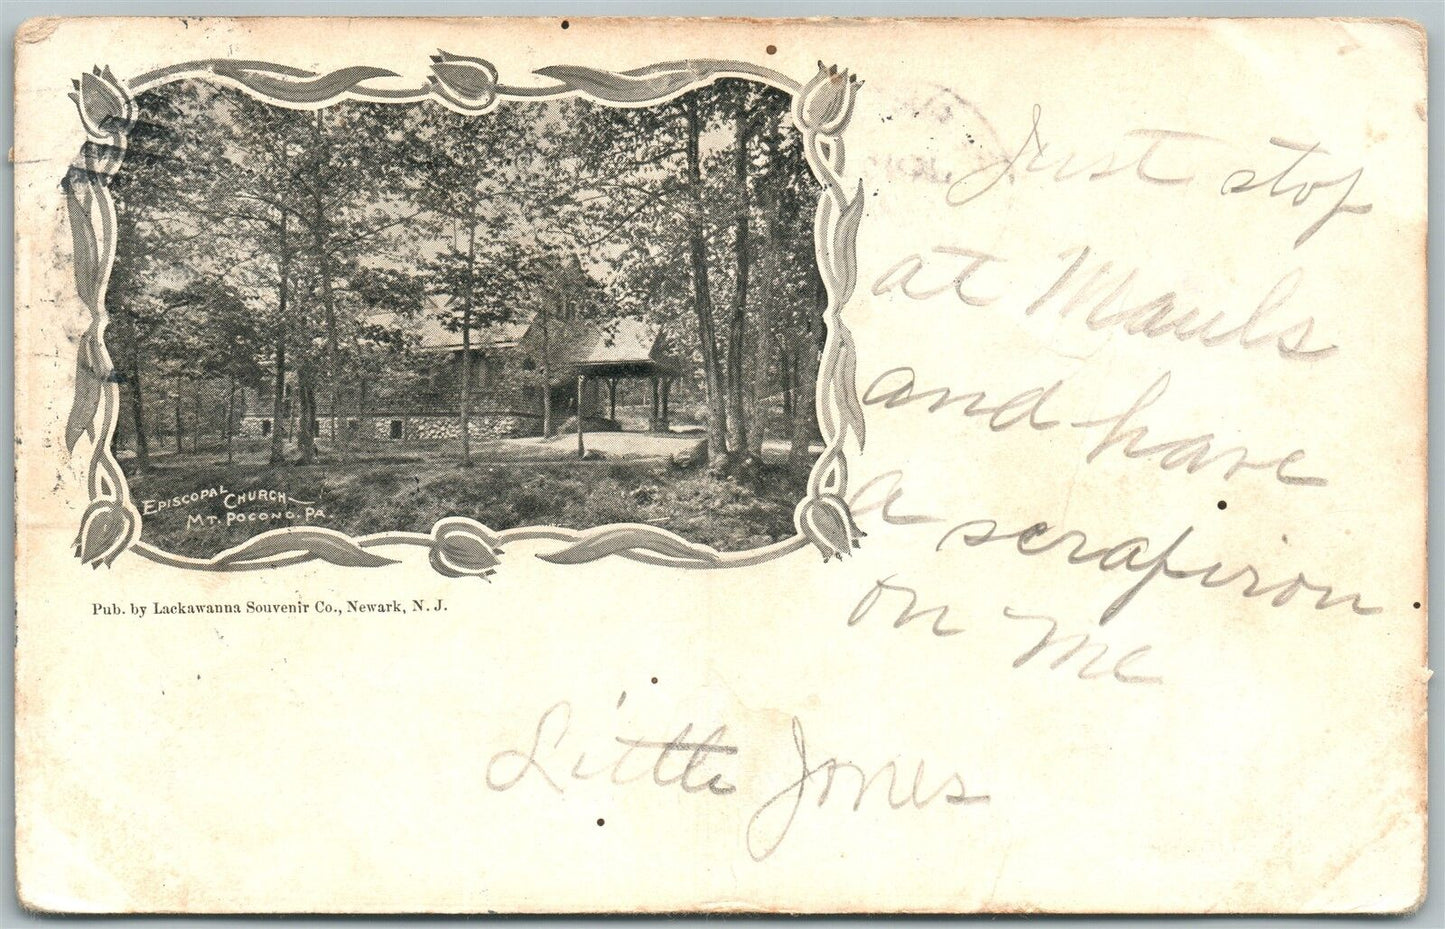 Just stop
at Mauls
and have
a scrafiron
on me
Little Jones
EPISCOPAL CHURCH
MT. POCONO. PA.
Pub. by Lackawanna Souvenir Co., Newark, N. J.